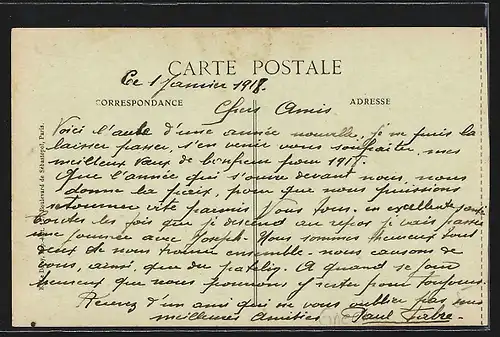 CARTE POSTALE
Ce 1 Janvier 1918.
CORRESPONDANCE
ADRESSE
Chers Amis
Voici l'aube d'une année nouvelle, je ne puis la
laisser passer, s'en venir vous souhaiter, mes
meilleur vœux de bonheur pour 1918.
Que l'année qui s'ouvre devant nous, nous
donne la paix, pour que nous puissions
retourner vite parmis Vous Tous. en excellente santé
toutes les fois que je descend au repos je vais passer
une journée avec Joseph. Nous sommes heureux tous
deux de nous trouver ensemble. nous causons de
vous, ainsi que du patelin. A quand ce jour
heureux que nous pourrons y rester pour toujours.
Recevez d'un ami qui ne vous oublier pas ses
meilleures Amitiés Paul Fabre.
Boulevard de Sébastopol, Paris.